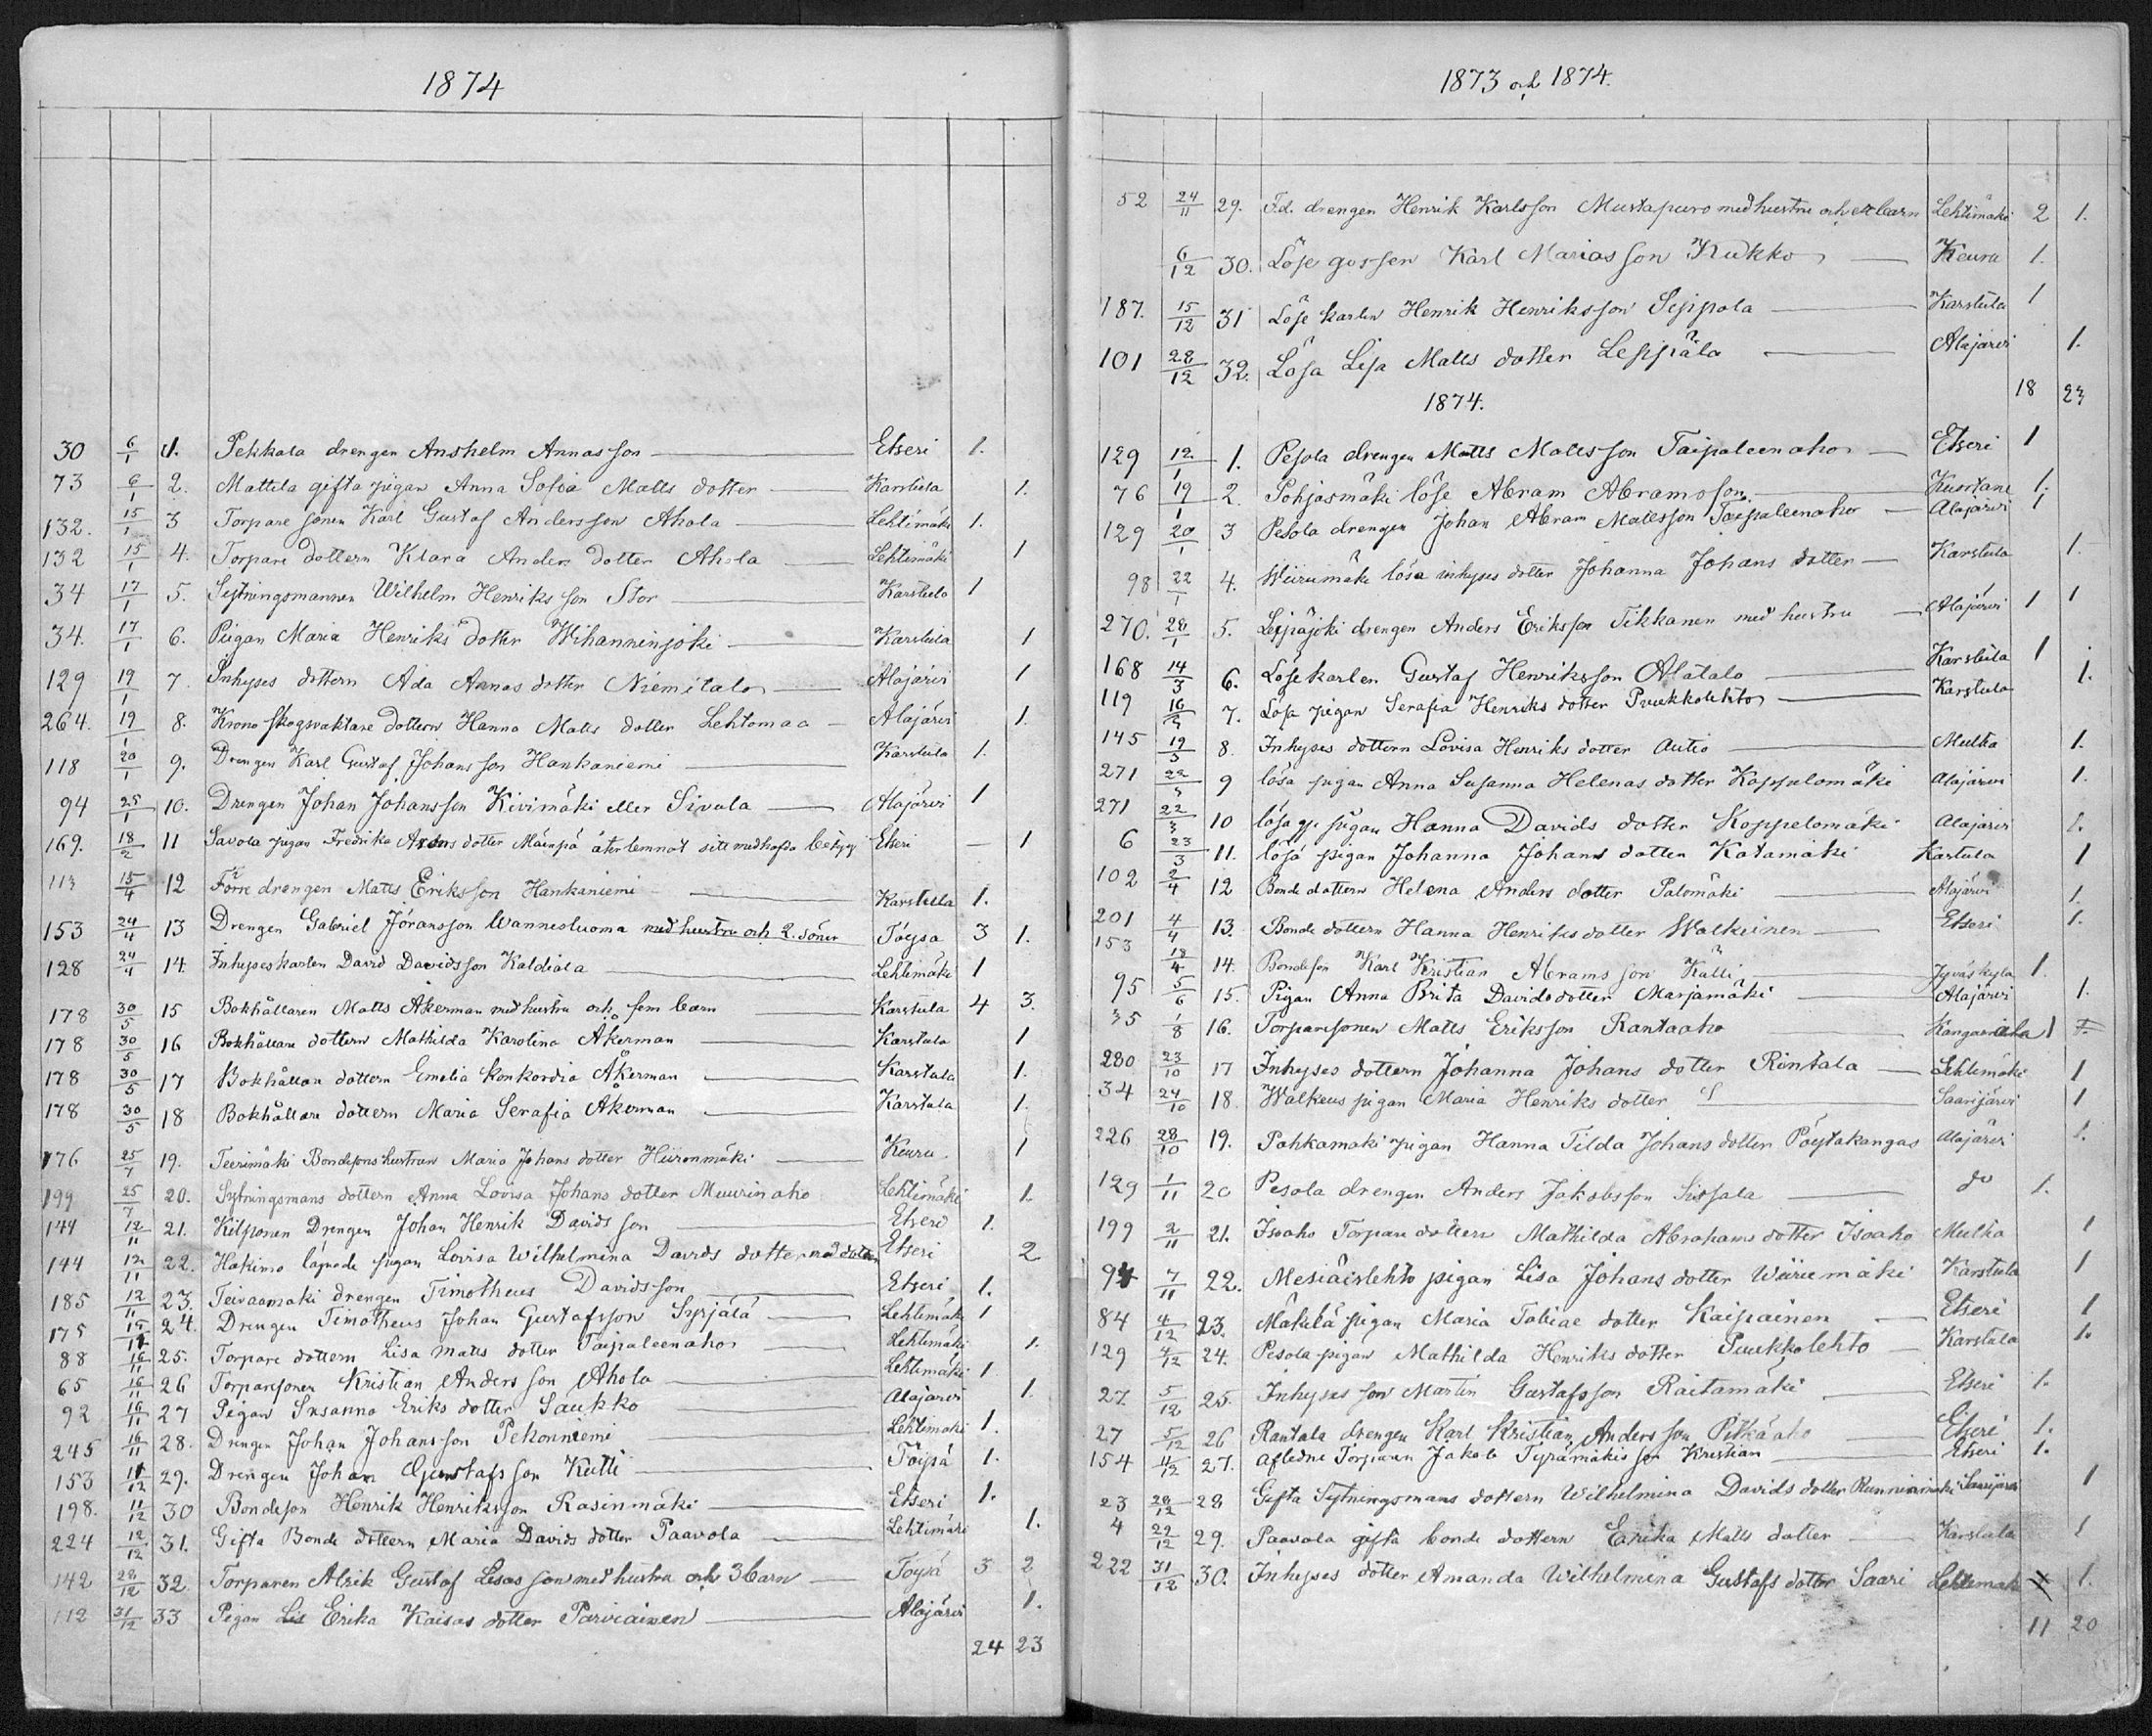 1874
30 6/1 1. Pekkala drengen Anshelm Annasson Etseri 1.
73 6/1 2. Mattila gifta pigan Anna Sofia Matts dotter Karstula 1.
132. 15/1 3 Torpare sonen Karl Gustaf Andersson Ahola Lehtimäki 1.
132 15/1 4. Torpare dottern Klara Anders dotter Ahola Lehtimäki 1
34 17/1 5. Sytningsmannen Wilhelm Henriksson Stor Karstula 1
34. 17/1 6. Pigan Maria Henriks dotter Wihanninjoki Karstula 1
129 19/1 7. Inhyses dottern Ada Annas dotter Niemitalo Alajärvi 1
264. 19/1 8. Krono skogvaktare dottern Hanna Matts dotter Lehtomaa Alajärvi 1.
118 20/1 9. Drengen Karl Gustaf Johansson Hankaniemi Karstula 1.
94 25/1 10. Drengen Johan Johansson Kivimäki eller Sivula Alajärvi 1
169. 18/2 11 Savola pigan Fredrika dotter Mäenpä återlemnat sitt medhafda betyg Etseri 1
113 15/4 12 Förre drengen Matts Eriksson Hankaniemi Karstula 1.
153 24/4 13 Drengen Gabriel Jöransson Wannesluoma med hustru och 2. söner Töysa 3 1.
128 24/4 14. Inhyseskarlen David Davidsson Kaldiala Lehtimäki 1
178 30/5 15 Bokhållaren Matts Åkerman med hustru och fem barn Karstula 4 3.
178 30/5 16 Bokhållare dottern Mathilda Karolina Åkerman Karstula 1
178 30/5 17 Bokhållare dottern Emelia Konkordia Åkerman Karstula 1.
178 30/5 18 Bokhållare dottern Maria Serafia Åkerman Karstula 1.
176 25/7 19. Teerimäki Bondesons hustrun Maria Johans dotter Hiironmäki Keuru. 1
199 25/7 20. Sytningsmans dottern Anna Lovisa Johans dotter Muurinaho Lehtimäki 1.
144 12/11 21. Kilponen Drengen Johan Henrik Davidsson Etseri 1.
144 12/11 22. Hakimo lägrade pigan Lovisa Wilhelmina Davids dotter med dotter Etseri 2
185 12/11 23. Teivaamäki drengen Timotheus Davidsson Etseri 1.
175 15/11 24. Drengen Timotheus Johan Gustafsson Syrjälä Lehtimäki 1
88 16/11 25. Torpare dottern Lisa Matts dotter Taipaleenaho Lehtimäki 1.
65 16/11 26 Torparesonen Kristian Andersson Ahola Lehtimäki 1
92 16/11 27 Pigan Susanna Eriks dotter Saukko Alajärvi 1.
245 16/11 28. Drengen Johan Johansson Pekonniemi Lehtimäki 1.
153 11/12 29. Drengen Johan Gustafsson Kutti Töysä 1.
198. 11/12 30 Bondeson Henrik Henriksson Rasinmäki Etseri 1.
224 12/12 31. Gifta Bonde dottern Maria Davids dotter Paavola Lehtimäki 1.
142 28/12 32 Torparen Alrik Gustaf Lisasson med hustru och 3 barn Töysä 3 2
112 31/12 33 Pigan Erika Kaisas dotter Parviainen Alajärvi 1.
24 23
1873 och 1874.
52 24/11 29. F.d. drengen Henrik Karlsson Mustapuro med hustru och ett barn Lehtimäki 2 1.
6/12 30. Löse gossen Karl Mariasson Kukko Keura 1.
187. 15/12 31 Löse karlen Henrik Henriksson Seppola Karstula 1
101 28/12 32. Lösa Lisa Matts dotter Leppälä Alajärvi 1.
18 23
1874.
129 12/1 1. Pesola drengen Matts Mattsson Taipaleenaho Etseri 1
76 19/1 2 Pohjasmäki löse Abram Abramsson Kuortane 1.
129 20/1 3 Pesola drengen Johan Abram Mattsson Taipaleenaho Alajärvi 1
98 22/1 4. Wiirumäki lösa inhyses dotter Johanna Johans dotter Karstula 1.
270. 28/1 5. Leppäjoki drengen Anders Eriksson Tikkanen med hustru Alajärvi 1 1
168 14/3 6. Löse karlen Gustaf Henriksson Alatalo Karstula 1
119 16/3 7. Lösa pigan Serafia Henriks dotter Puukkolehto Karstula 1.
145 19/3 8. Inhyses dottern Lovisa Henriks dotter Autio Multia 1.
271 22/3 9 lösa pigan Anna Susanna Helenas dotter Koppelomäki Alajärvi 1.
271 22/3 10 lösa pigan Hanna Davids dotter Koppelomäki Alajärvi 1.
6 23/3 11. lösa pigan Johanna Johans dotter Katamäki Karstula 1
102 2/4 12 Bonde dottern Helena Anders dotter Palomäki Alajärvi 1.
201 4/4 13. Bonde dottern Hanna Henriks dotter Walkeinen Etseri 1.
153 18/4 14. Bondeson Karl Kristian Abramsson Källi Jyväskyla 1.
95 5/6 15. Pigan Anna Brita Davids dotter Marjamäki Alajärvi 1.
35 1/8 16. Torparesonen Matts Eriksson Rantaaho Kangasniala 1
280 23/10 17 Inhyses dottern Johanna Johans dotter Rintala Lehtimäki 1
34 24/10 18. Walkeus pigan Maria Henriks dotter Saarijärvi 1
226 28/10 19. Pahkamäki pigan Hanna Tilda Johans dotter Pöytäkangas Alajärvi 1.
129 1/11 20 Pesola drengen Anders Jakobsson Sissala do 1.
199 2/11 21. Isoaho Torpare dottern Mathilda Abrahams dotter Isoaho Multia 1
94 7/11 22. Mesiäislehto pigan Lisa Johans dotter Wiirumäki Karstula 1
84 4/12 23. Mäkelä pigan Maria Tobiae dotter Kaipainen Etseri 1
129 4/12 24. Pesola pigan Mathilda Henriks dotter Puukkolehto Karstula 1.
27. 5/12 25. Inhyses son Martin Gustafsson Raitamäki Etseri 1.
27 5/12 26 Rantala drengen Karl Kristian Andersson Pitkäaho Etseri 1.
154 11/12 27. Afledne Torparen Jakob Tyrämäkis son Kristian Etseri 1.
23 28/12 28 Gifta Sytningsmans dottern Wilhelmina Davids dotter Saarijärvi 1
4 29/12 29. Paavola gifta bonde dottern Erika Matts dotter Karstula 1
222 31/12 30. Inhyses dotter Amanda Wilhelmina Gustafs dotter Saari Lehtimäk 1.
11 20